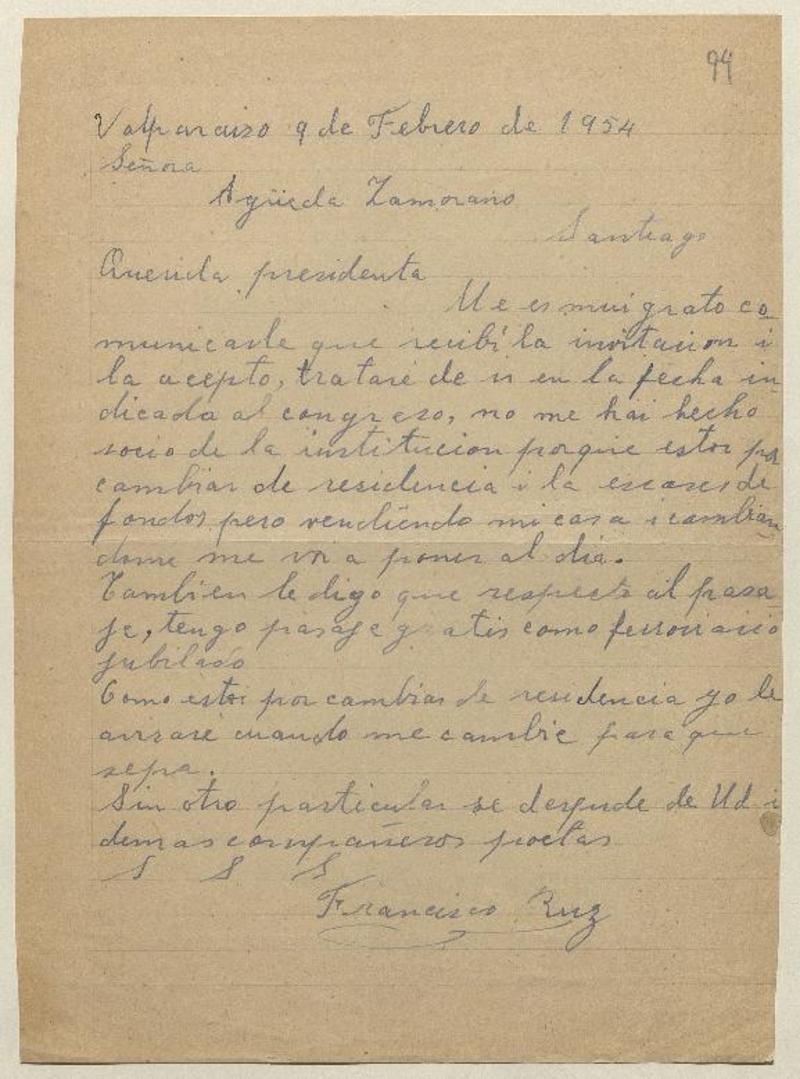 94
Valparaiso 9 de Febrero de 1954
Señora
Agüeda Zamorano
Santiago
Querida presidenta
Me es mui grato co
municarle que recibí la invitacion i
la acepto, trataré de ir en la fecha in
dicada al congreso, no me hai hecho
socio de la institucion porque estoi por
cambiar de residencia i la escases de
fondos pero vendiendo mi casa i cambian
dome me voi a poner al dia.
Tambien le digo que respecto al pasa
je, tengo pasaje gratis como ferroviario
jubilado
Como estoi por cambiar de residencia yo le
avisaré cuando me cambie para que
sepa.
Sin otro particular se despide de Ud i
demas compañeros poetas
S S S
Francisco Ruz